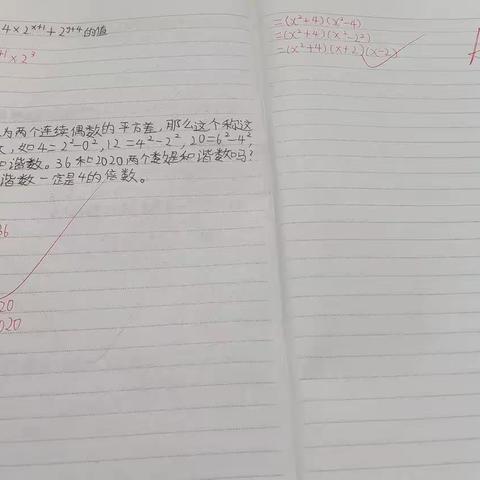 4×2^{x+1}+2^{y+4}的值
×2^3
为两个连续偶数的平方差,那么这个称这
如4=2²-0²,12=4²-2²,20=6²-4²,
谐数。36和2020两个数是和谐数吗?
谐数一定是4的倍数。
36
20
020
=(x²+4)(x²-4)
=(x²+4)(x²-2²)
=(x²+4)(x+2)(x-2)